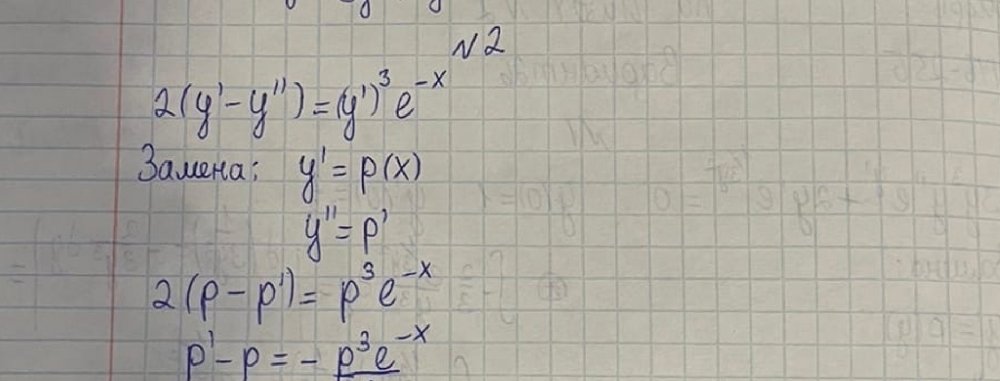 №2
2(y' - y'') = (y')³ e⁻ˣ
Замена: y' = p(x)
y'' = p'
2(p - p') = p³ e⁻ˣ
p' - p = - p³ e⁻ˣ